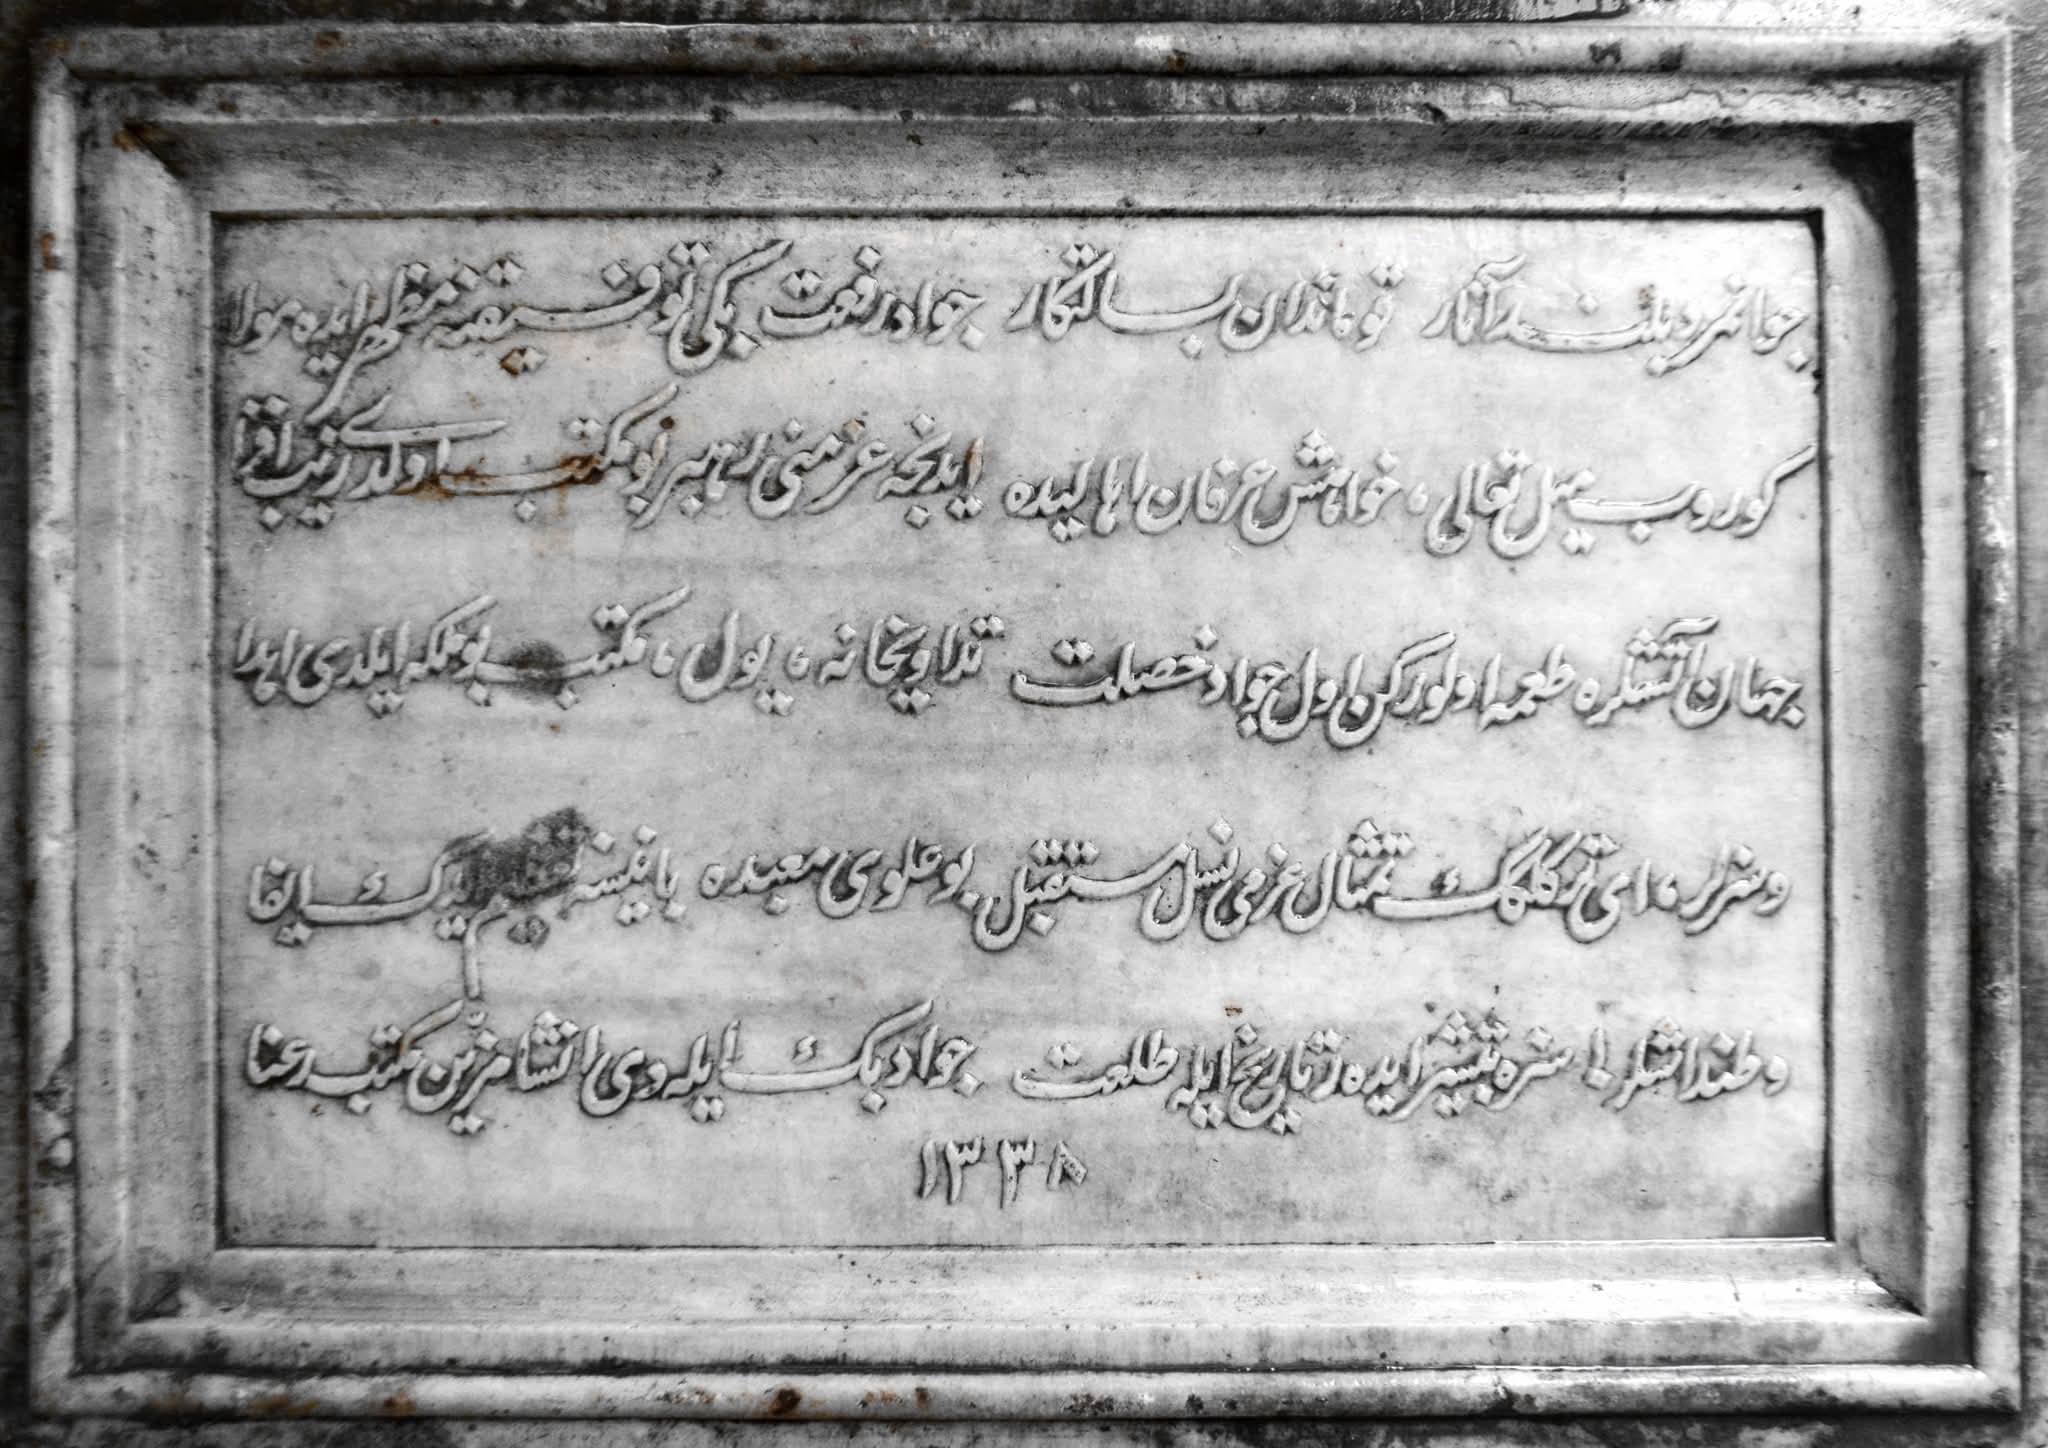 جوانمرد بلند آثار قوماندان بسالتكار جواد رفعت بكی توفیقنه مظهر ایده مولا
كوروب میل تعالی، خواهش عرفان اهالیده ایدنجه عزمنی رهبر بو مكتب اولدی زیب افزا
جهان آتشلره طعمه اولوركن اول جواد خصلت تداویخانه، یول، مكتب بو ملكه ایلدی اهدا
وسزلر، ای تركلگك تمثال عزمی نسل مستقبل بو علوی معبده یدك ایفا
وطنداشلر! سزه تبشیر ایده ر تاریخ ایله طلعت جواد بك ایله دی انشا مزین مكتب رعنا
١٣٣٨